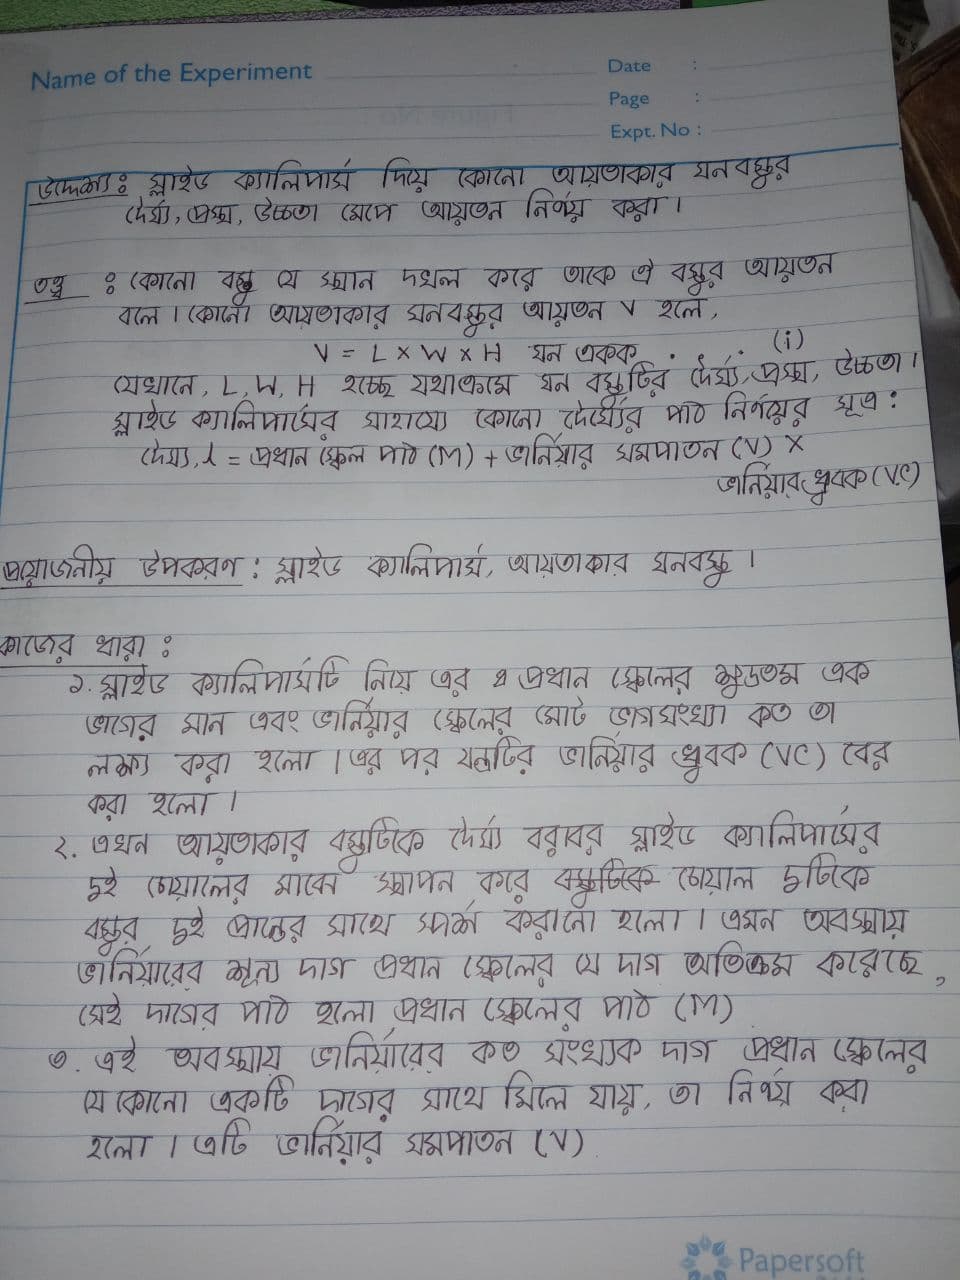 Name of the Experiment
Date :
Page :
Expt. No :
উদ্দেশ্য : স্লাইড ক্যালিপার্স দিয়ে কোনো আয়তাকার ঘনবস্তুর
দৈর্ঘ্য, প্রস্থ, উচ্চতা মেপে আয়তন নির্ণয় করা।
তত্ত্ব : কোনো বস্তু যে স্থান দখল করে তাকে ঐ বস্তুর আয়তন
বলে। কোনো আয়তাকার ঘনবস্তুর আয়তন V হলে,
V = L × W × H ঘন একক . . . (i)
যেখানে, L, W, H হচ্ছে যথাক্রমে ঘন বস্তুটির দৈর্ঘ্য, প্রস্থ, উচ্চতা।
স্লাইড ক্যালিপার্সের সাহায্যে কোনো দৈর্ঘ্যের পাঠ নির্ণয়ের সূত্র :
দৈর্ঘ্য, L = প্রধান স্কেল পাঠ (M) + ভার্নিয়ার সমপাতন (V) ×
ভার্নিয়ার ধ্রুবক (V.C)
প্রয়োজনীয় উপকরণ : স্লাইড ক্যালিপার্স, আয়তাকার ঘনবস্তু।
কাজের ধারা :
১. স্লাইড ক্যালিপার্সটি নিয়ে এর প্রধান স্কেলের ক্ষুদ্রতম এক
ভাগের মান এবং ভার্নিয়ার স্কেলের মোট ভাগসংখ্যা কত তা
লক্ষ্য করা হলো। এর পর যন্ত্রটির ভার্নিয়ার ধ্রুবক (VC) বের
করা হলো।
২. এখন আয়তাকার বস্তুটিকে দৈর্ঘ্য বরাবর স্লাইড ক্যালিপার্সের
দুই চোয়ালের মাঝে স্থাপন করে বস্তুটিকে চোয়াল দুটিকে
বস্তুর দুই প্রান্তের সাথে স্পর্শ করানো হলো। এমন অবস্থায়
ভার্নিয়ারের শূন্য দাগ প্রধান স্কেলের যে দাগ অতিক্রম করেছে,
সেই দাগের পাঠ হলো প্রধান স্কেলের পাঠ (M)
৩. এই অবস্থায় ভার্নিয়ারের কত সংখ্যক দাগ প্রধান স্কেলের
যে কোনো একটি দাগের সাথে মিলে যায়, তা নির্ণয় করা
হলো। এটি ভার্নিয়ার সমপাতন (V)
Papersoft